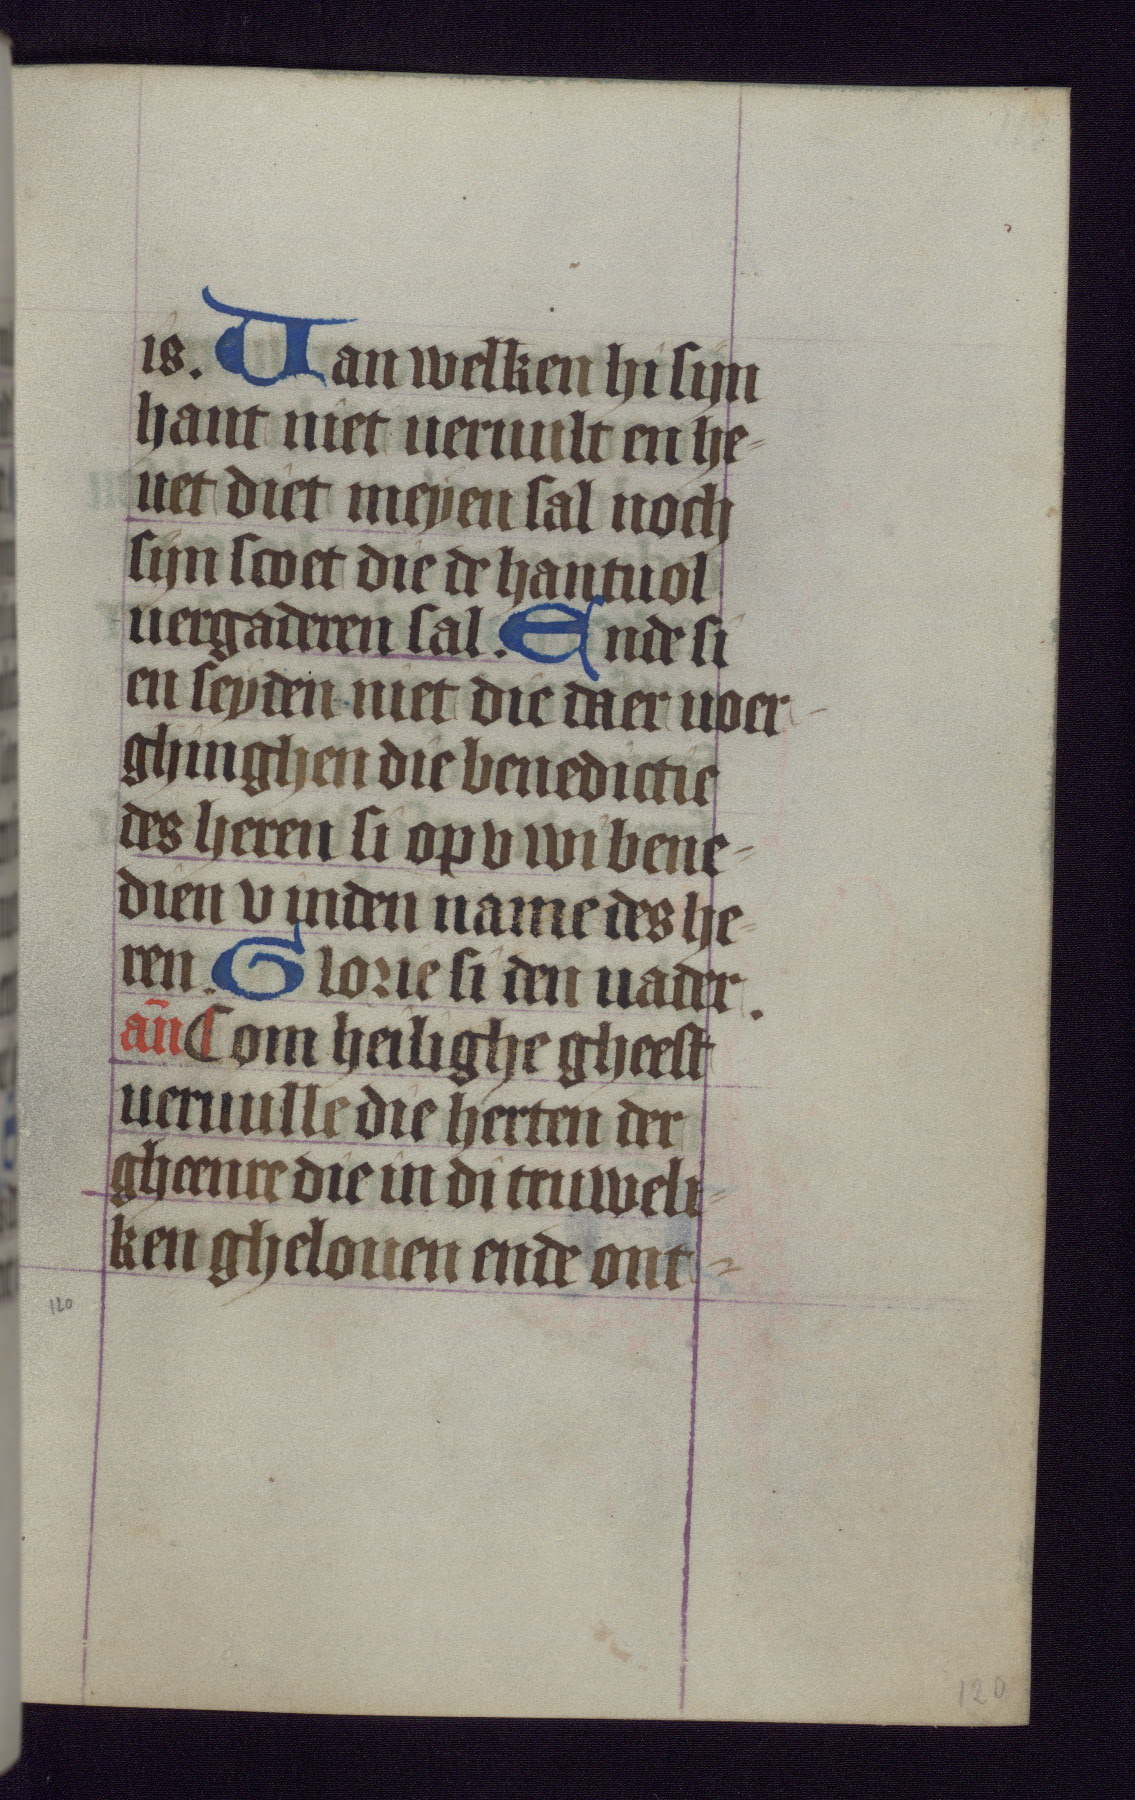 is. Uan welken hi sijn
hant niet veruult en he-
uet diet meyen sal noch
sijn scoet die de hantuol
uergaderen sal. Ende si
en seyden niet die daer uoer
ghinghen die benedictie
des heren si op v wi bene-
dien v inden name des he-
ren. Glorie si den uader.
an̄ Com heilighe gheest
ueruulle die herten der
gheenre die in di truweli-
ken ghelouen ende ont-
120
120